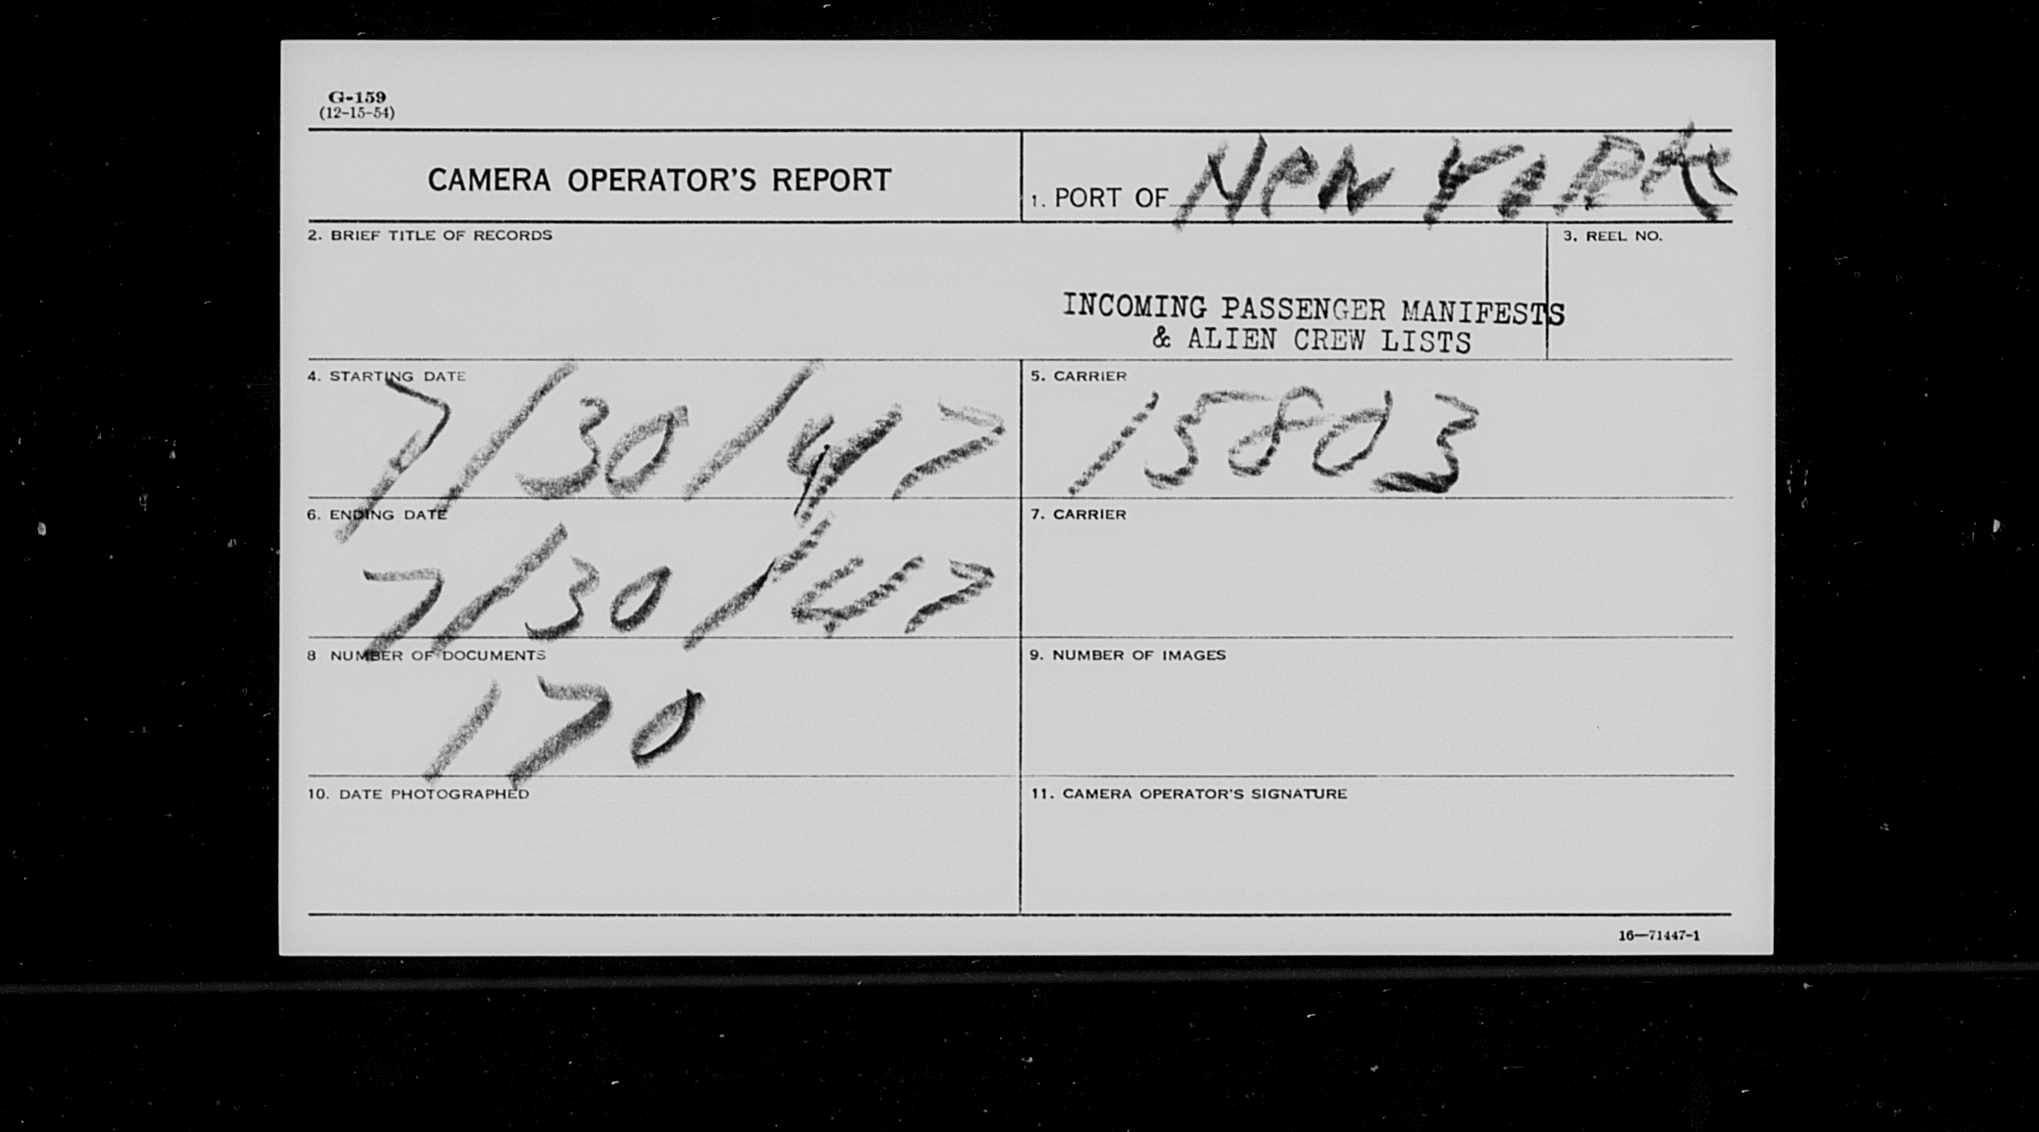 G-159
(12-15-54)
CAMERA OPERATOR'S REPORT
1. PORT OF New York
2. BRIEF TITLE OF RECORDS
3. REEL NO.
INCOMING PASSENGER MANIFESTS
& ALIEN CREW LISTS
4. STARTING DATE
7/30/47
5. CARRIER
15803
6. ENDING DATE
7/30/47
7. CARRIER
8 NUMBER OF DOCUMENTS
170
9. NUMBER OF IMAGES
10. DATE PHOTOGRAPHED
11. CAMERA OPERATOR'S SIGNATURE
16—71447-1